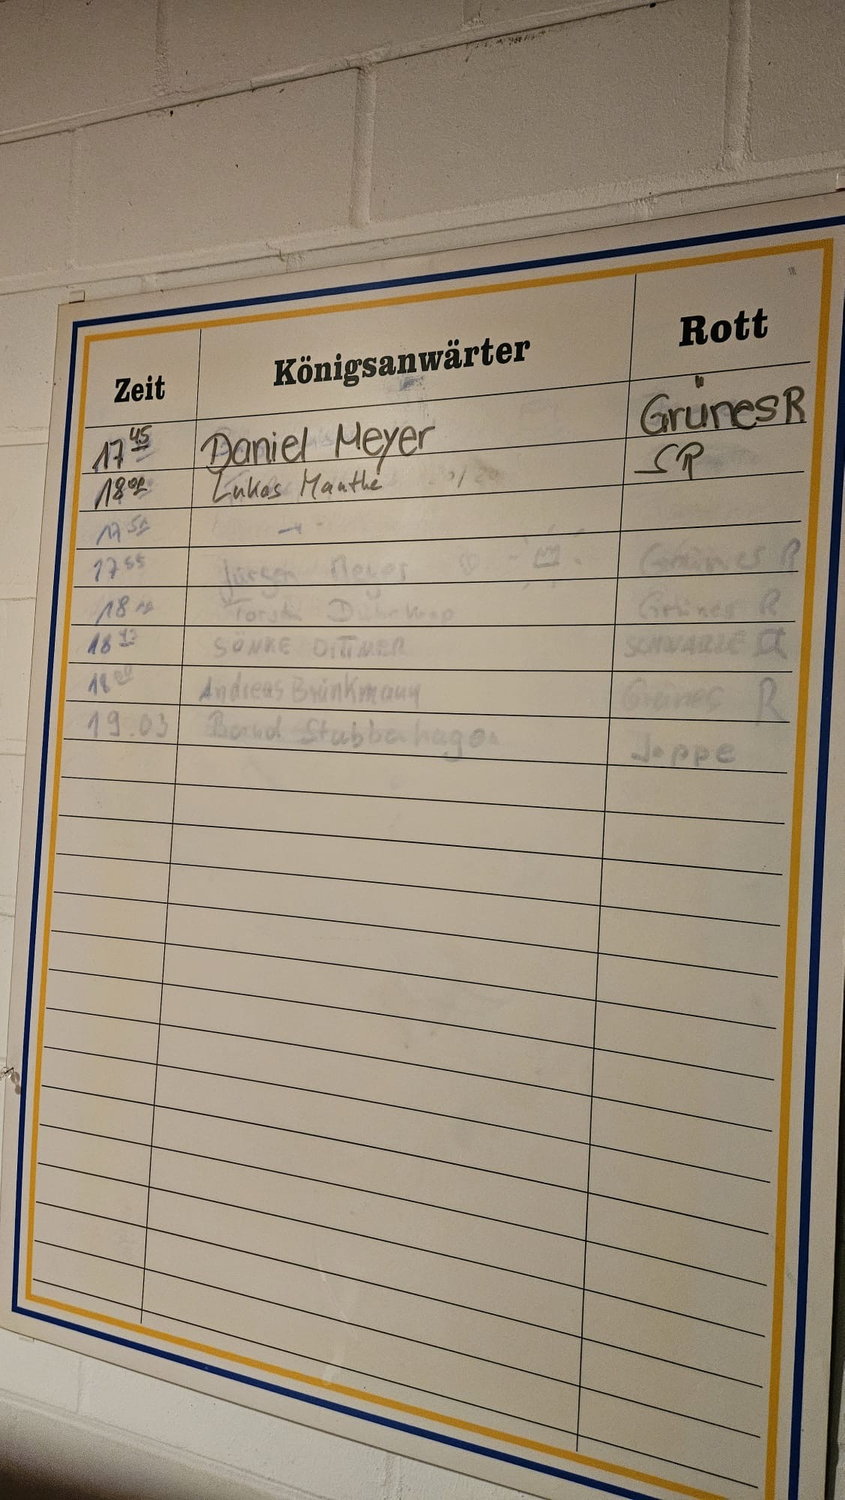 Zeit Königsanwärter Rott
17 45 Daniel Meyer Grünes R
18 02 Lukas Manthe SR
17 55 Jürgen Meyer Grünes R
18 Grünes R
18 SÖNKE DITTMER SCHWARZE R
18 00 Andreas Brinkmann Grünes R
19.03 Stabbenhagen Joppe